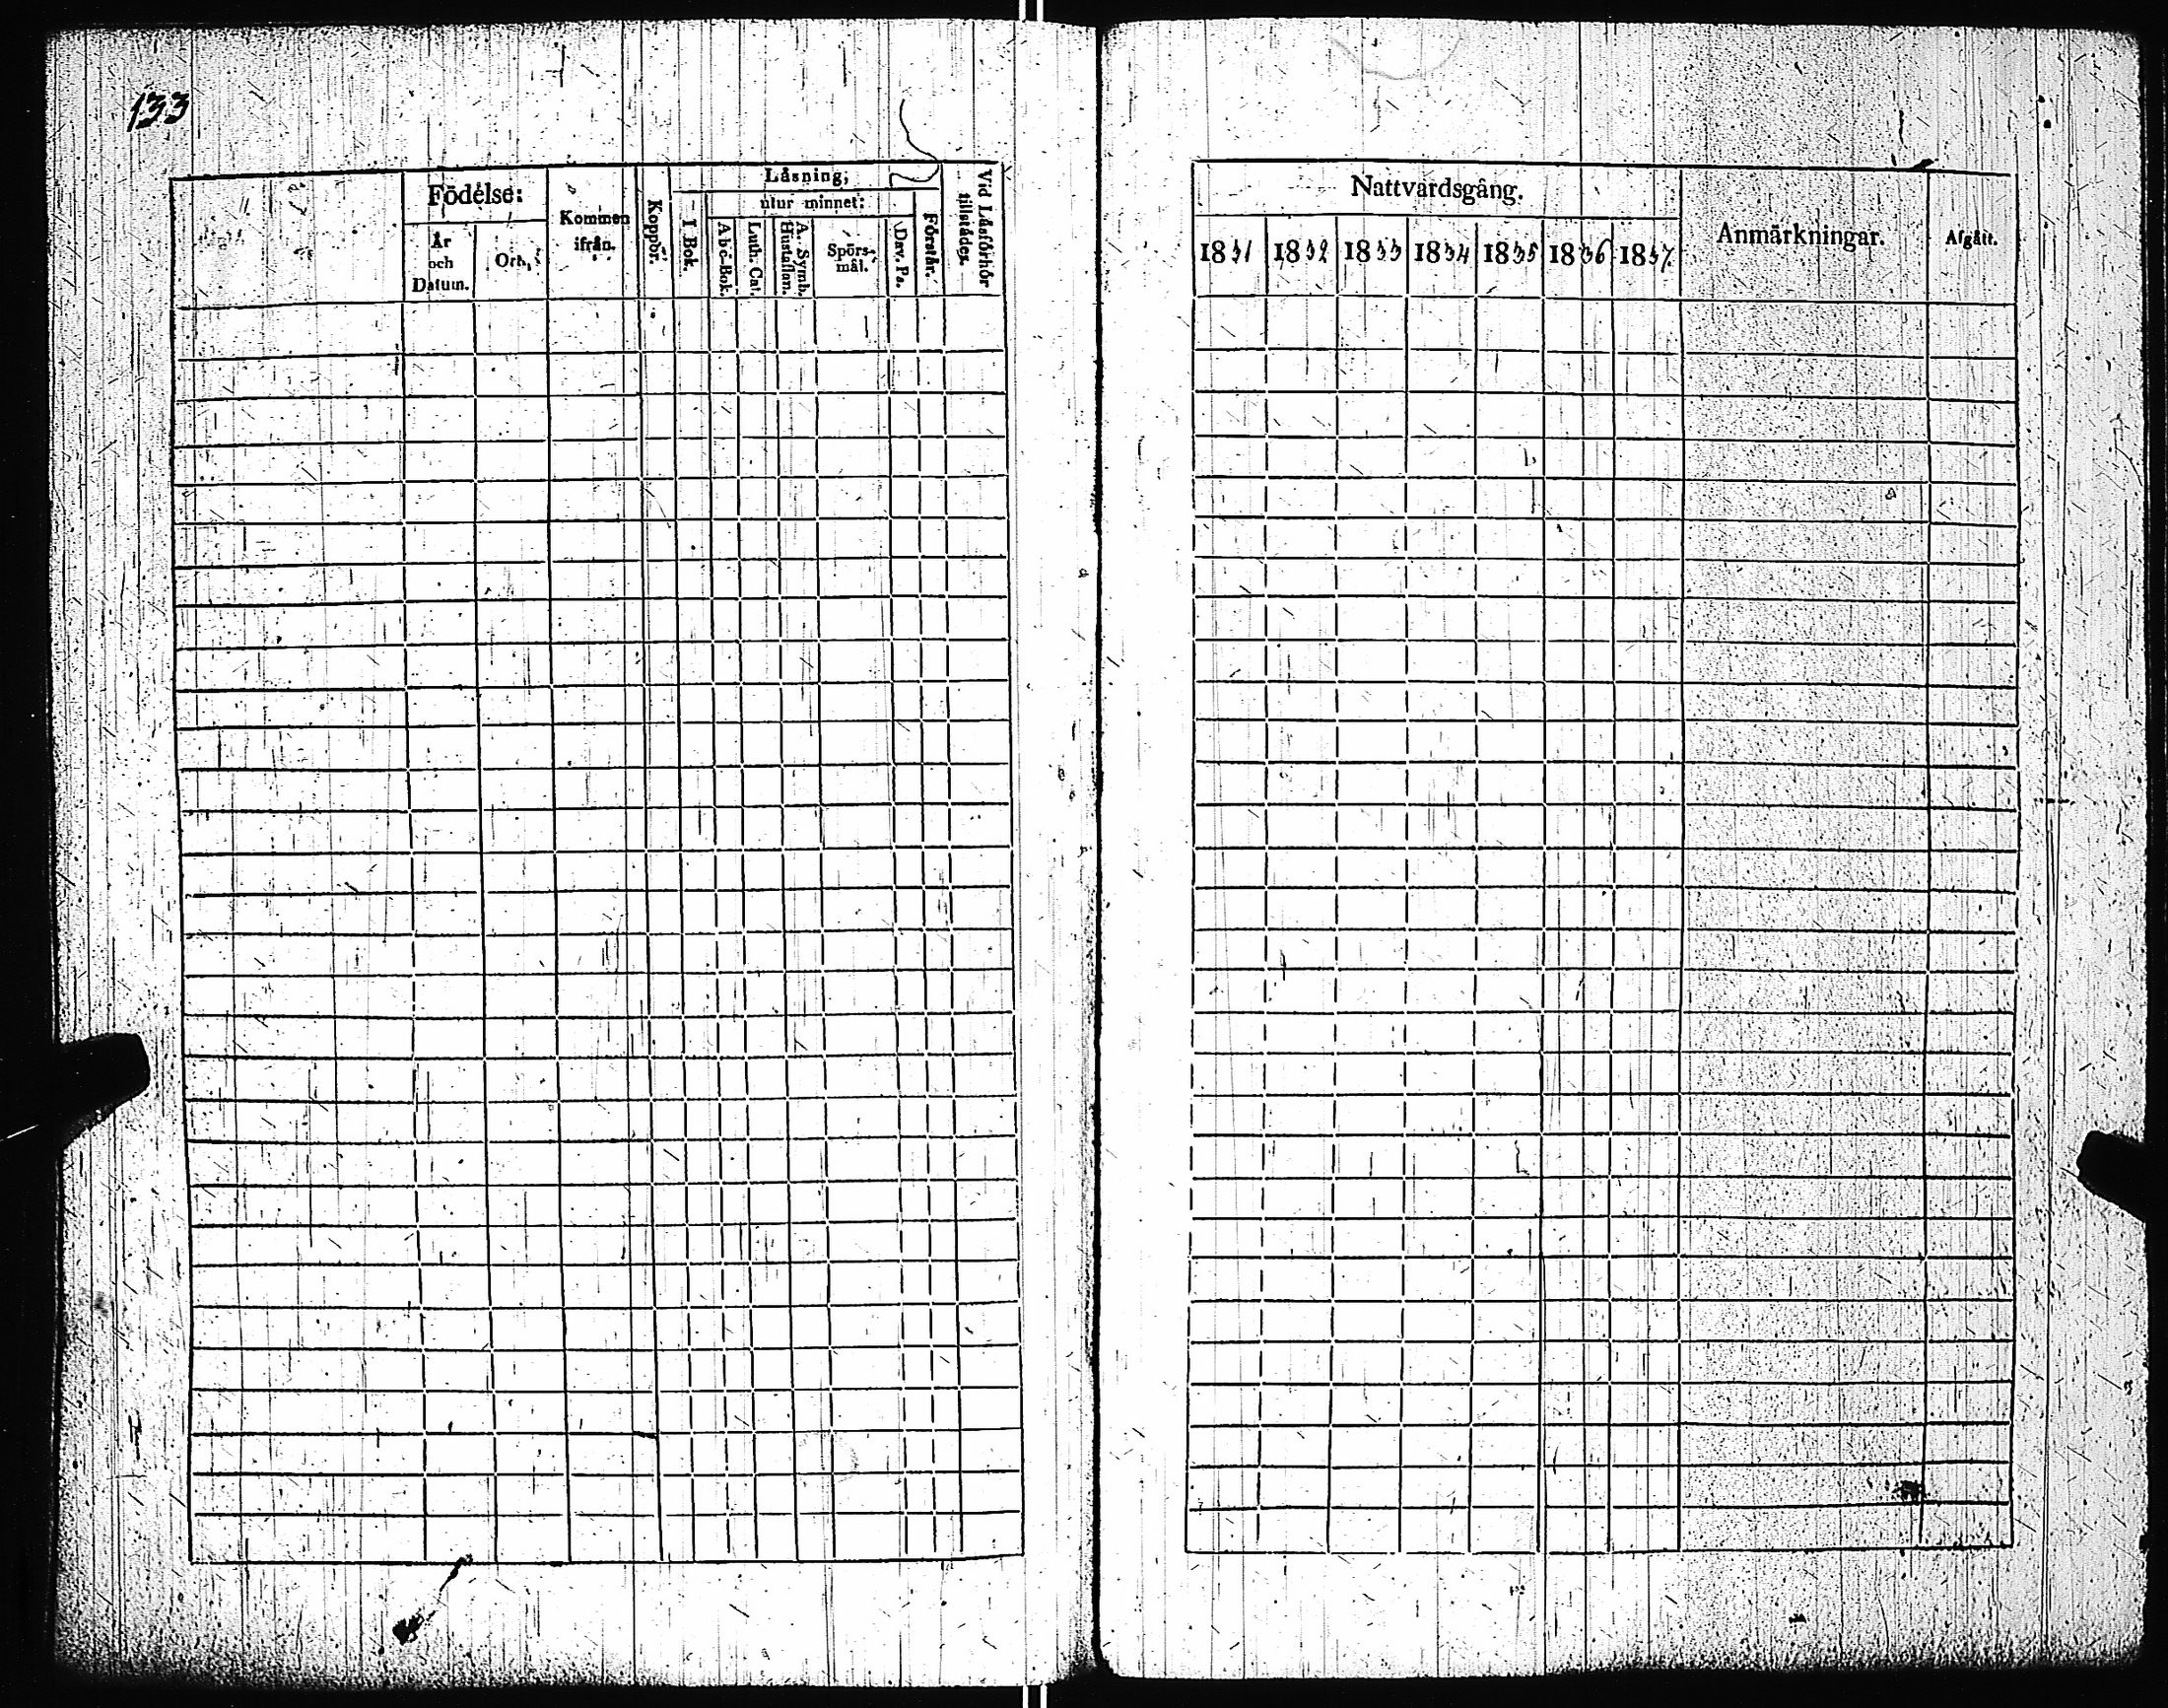 133
Födelse:
År
och
Datum.
Ort.
Kommen
ifrån.
Koppor.
Läsning,
I Bok.
utur minnet:
Abc-Bok.
Luth. Cat.
A. Symb.
Hustaflan.
Spörs-
mål.
Dav. Ps.
Förstår.
Vid Läsförhör
tillstädes.
Nattvardsgång.
1831 1832 1833 1834 1835 1836 1837.
Anmärkningar.
Afgått.